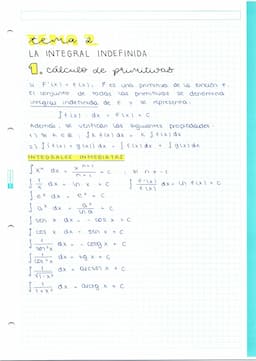 tema 2
LA INTEGRAL INDEFINIDA
1. cálculo de primitivas
Si F'(x) = f(x), F es una primitiva de la función f.
El conjunto de todas las primitivas se denomina
integral indefinida de f y se representa:
∫ f(x) dx = F(x) + C
Además, se verifican las siguientes propiedades
1) ∀ k ∈ ℝ, ∫ k f(x) dx = k ∫ f(x) dx
2) ∫ [f(x) + g(x)] dx = ∫ f(x) dx + ∫ g(x) dx
INTEGRALES INMEDIATAS
∫ xⁿ dx = xⁿ⁺¹/n+1 + C, si n ≠ -1
∫ 1/x dx = ln x + C ∫ f'(x)/f(x) dx = ln f(x) + C
∫ eˣ dx = eˣ + C
∫ aˣ dx = aˣ/ln a + C
∫ sen x dx = - cos x + C
∫ cos x dx = sen x + C
∫ 1/sen²x dx = - cotg x + C
∫ 1/cos²x dx = tg x + C
∫ 1/√1-x² dx = arcsen x + C
∫ 1/1+x² dx = arctg x + C